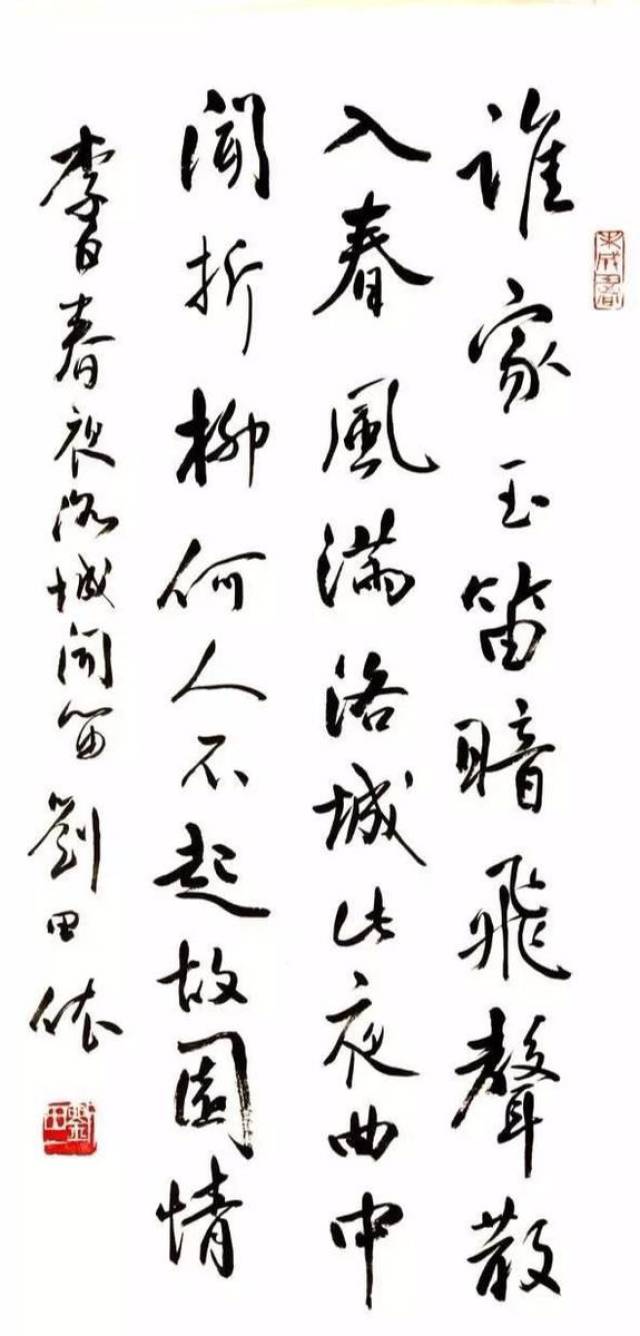 誰家玉笛暗飛聲散
入春風滿洛城此夜曲中
聞折柳何人不起故園情
李白春夜洛城聞笛 劉田依